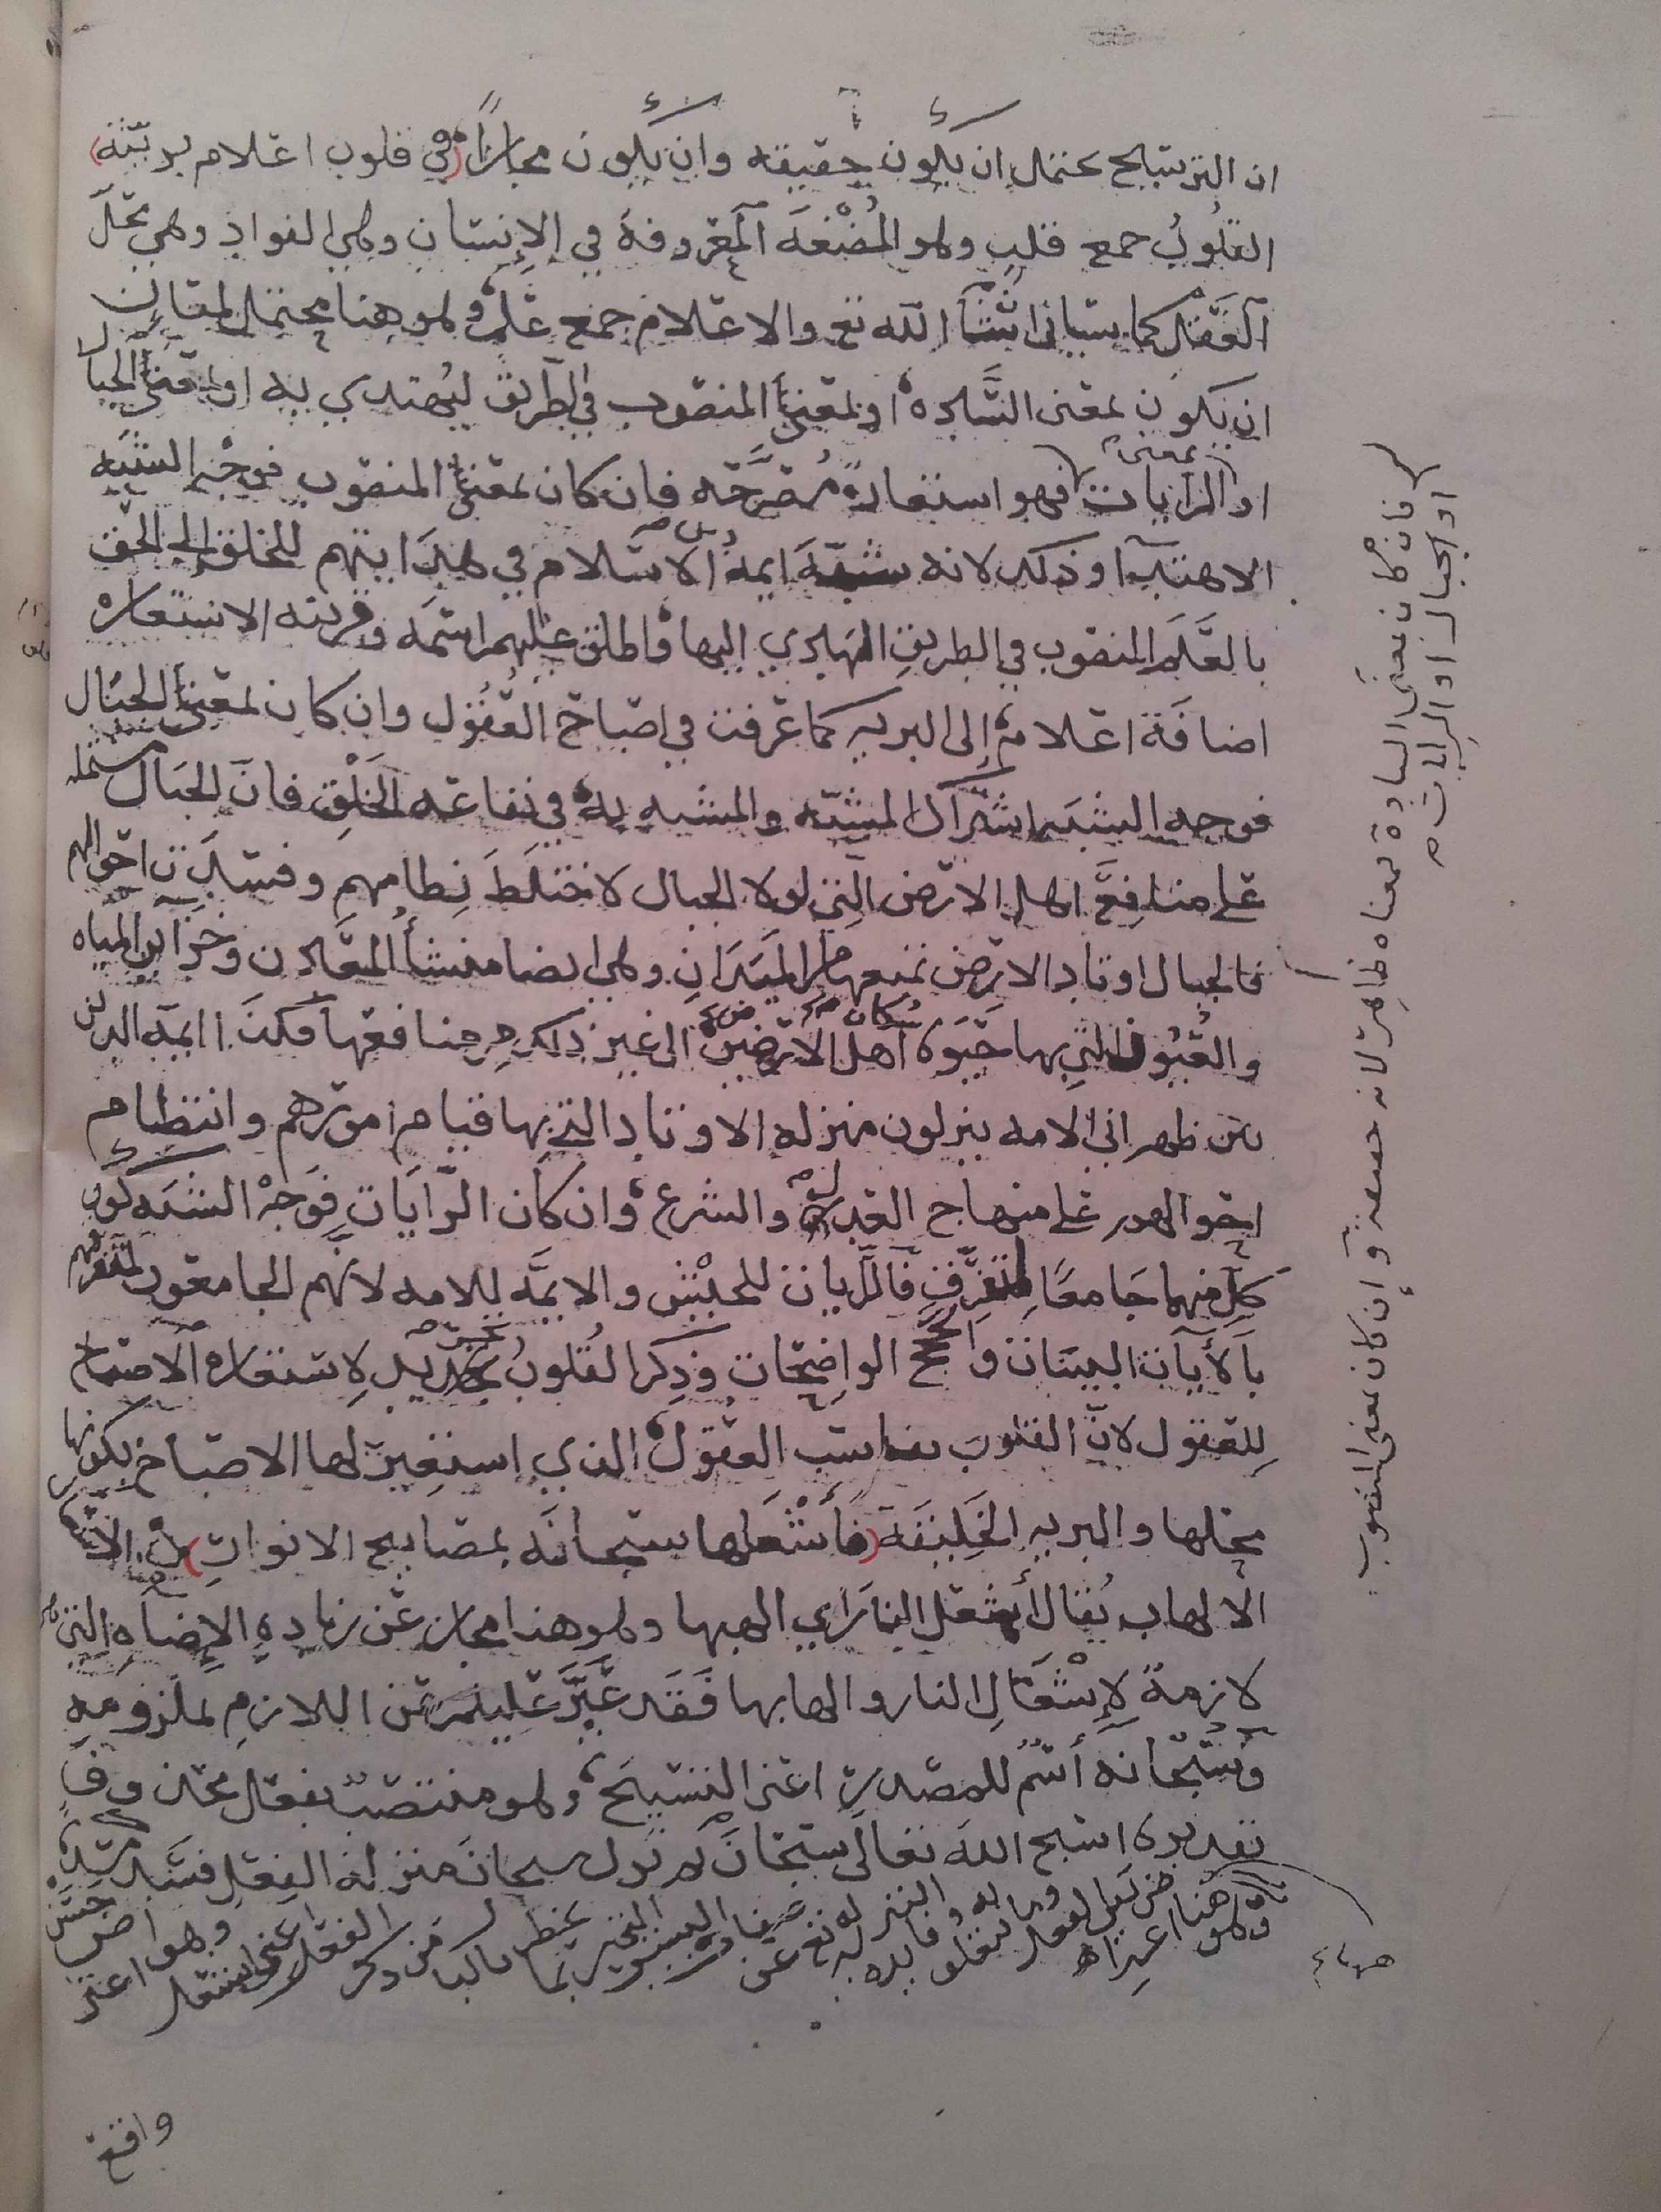 ان الترشيح يحتمل ان يكون حقيقه وان يكون مجازًا (في قلوب اعلام بريّته)
القلُوبُ جمع قلب وهو المُضْغَه المعروفة في الإنسان وهي الفواد وهي محلّ
العَقْل كما سياتي انشَا الله تع والاعلام جمع علم وهو هنا محتمل لمعانٍ
ان يكون بمعنى السَّاده او بمعنى المنصوب في الطريق ليُهتدي به او بمعنى الجبال
او بمعنى الرايات فهو استعارةٌ مُصَرَّحَه فان كان بمعنى المنصوب فوجْه الشبَه
الاهتدآ وذلك لانه شبّهَ ايمة الاسلام في هدَايتهم للخلق الى الحق
بالعَلَم المنصوب في الطريق الهَادي اليها واطلق عليهم اسْمَه وقرينه الاستعاره
اضافَة اعلام إلى البريه كما عرفت في اصباح العُقُول وان كان بمعنى الجبَال
فوجه الشبَه اشترَاك المشبّه والمشبه به في نفاعه الخَلْق فانّ الجبَال مشتمله
على منافِعَ اهل الارض التي لولا الجبال لاختلَطَ نِظامهم وفسدَت احوالهم
فالجبال اوتاد الارض تمنعها من الميَدَانِ وهي ايضا منشأ المعَادن وخزَآين المياه
والعُيُون التي بها حَيَوة سُكان الارض الى غير ذلك من منافعها فكذا ايمه الدين
بين ظهراني الامه ينزلون منزله الاوتاد التي بها قيام امورهم وانتظام
احوالهم على منهاج الدين والشرع وان كان الرَّايَاتِ فَوَجْه الشبَه كون
كلٍّ منهما جَامعًا لمتفرِّقٍ فالرايات للجيْش والايمَّه للامه لانّهم الجامعون لمتفرقهم
بالأيآت البينات والحجج الواضِحَات وَذِكر القلُوبُ تجريد لِاستعاره الاصباح
لِلعقول لانّ القلوبَ تناسب العقول الذي استعير لها الاصباح بكونها
محلها والبريه الخَلِيقَة (فَأَشْعَلها سبحانَه بمصابيح الانوارِ) من الاشعال
الالهاب يُقال أشعل النارَ اي الهبها وهو هنا مجاز عَن زيادهِ الإِضاه التي هي
لازمةٌ لِإِشْعَالِ النار والهابها فَقَد عَبَّرَ عليلم عن اللازمِ بملزومه
وسُبْحَانَه أسْمٌ للمصدرِ اعني التسْبِيحَ وهو منتصبٌ بفعل محذوف
تقديره اسبح اللهَ تعالَى سبْحَان ثم نزل سبحان منزله الفِعْل فسَدَّ مَسَدَّه
فان كان بمعنى السادة فمعناه ظاهر لانه حقيقة وإن كان بمعنى المنصوب
او الجبال او الرايات
واقع